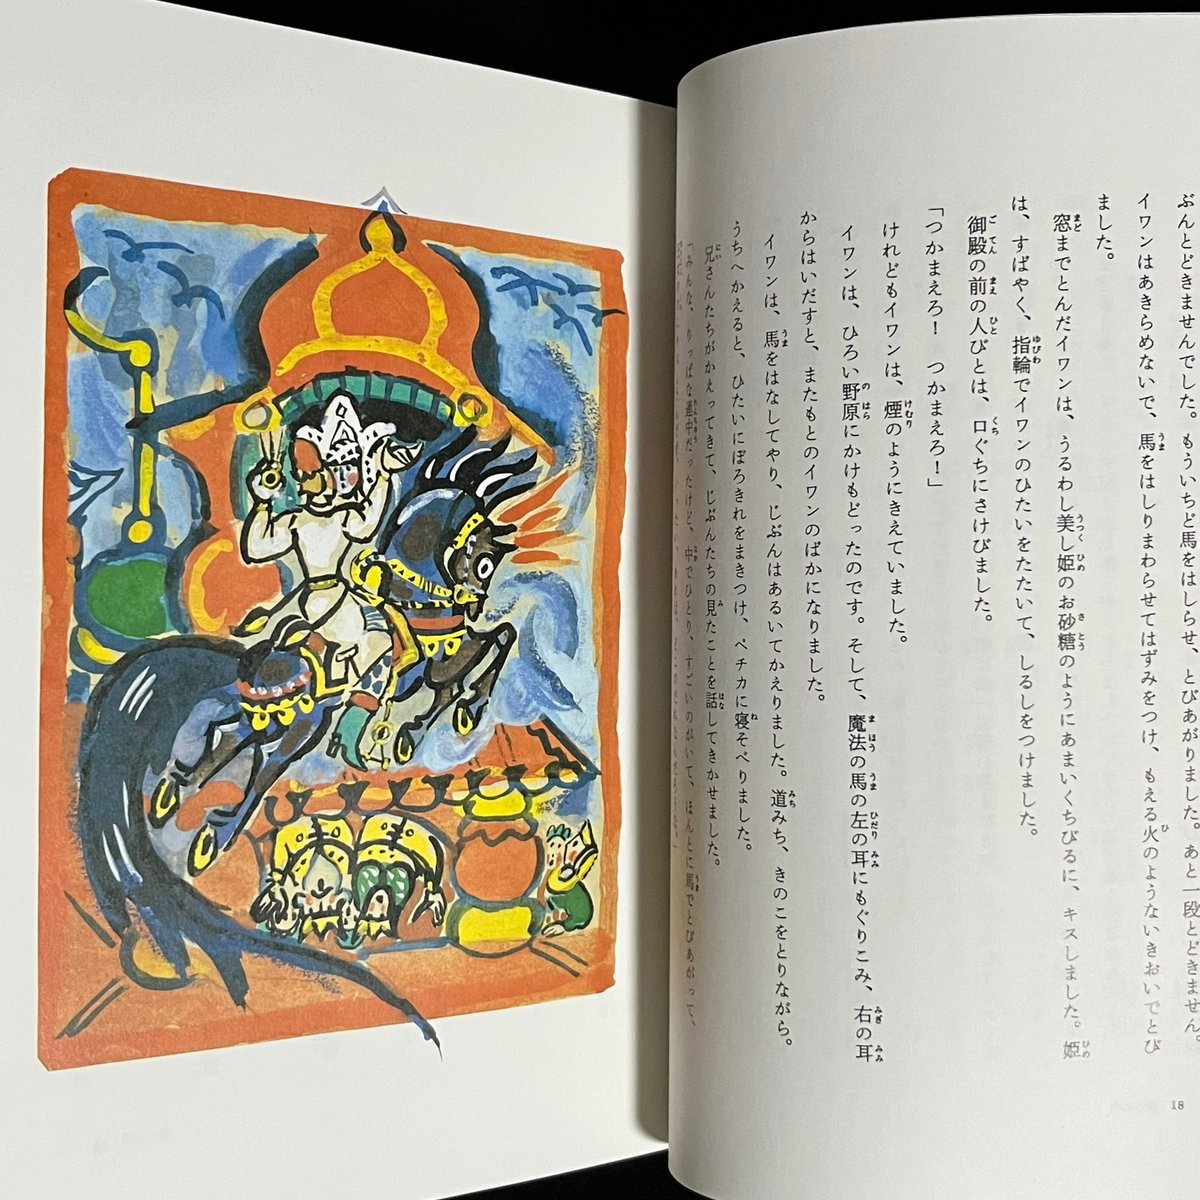 ぶんとどきませんでした。もういちど馬をはしらせ、とびあがりました。あと一段とどきません。
イワンはあきらめないで、馬をはしりまわらせてはずみをつけ、もえる火のようないきおいでとび
ました。
窓までとんだイワンは、うるわし美し姫のお砂糖のようにあまいくちびるに、キスしました。姫
は、すばやく、指輪でイワンのひたいをたたいて、しるしをつけました。
御殿の前の人びとは、口ぐちにさけびました。
「つかまえろ！　つかまえろ！」
けれどもイワンは、煙のようにきえていました。
イワンは、ひろい野原にかけもどったのです。そして、魔法の馬の左の耳にもぐりこみ、右の耳
からはいだすと、またもとのイワンのばかになりました。
イワンは、馬をはなしてやり、じぶんはあるいてかえりました。道みち、きのこをとりながら。
うちへかえると、ひたいにぼろきれをまきつけ、ペチカに寝そべりました。
兄さんたちがかえってきて、じぶんたちの見たことを話してきかせました。
「みんな、りっぱな連中だったけど、中でひとり、すごいのがいて、ほんとに馬でとびあがって、
18